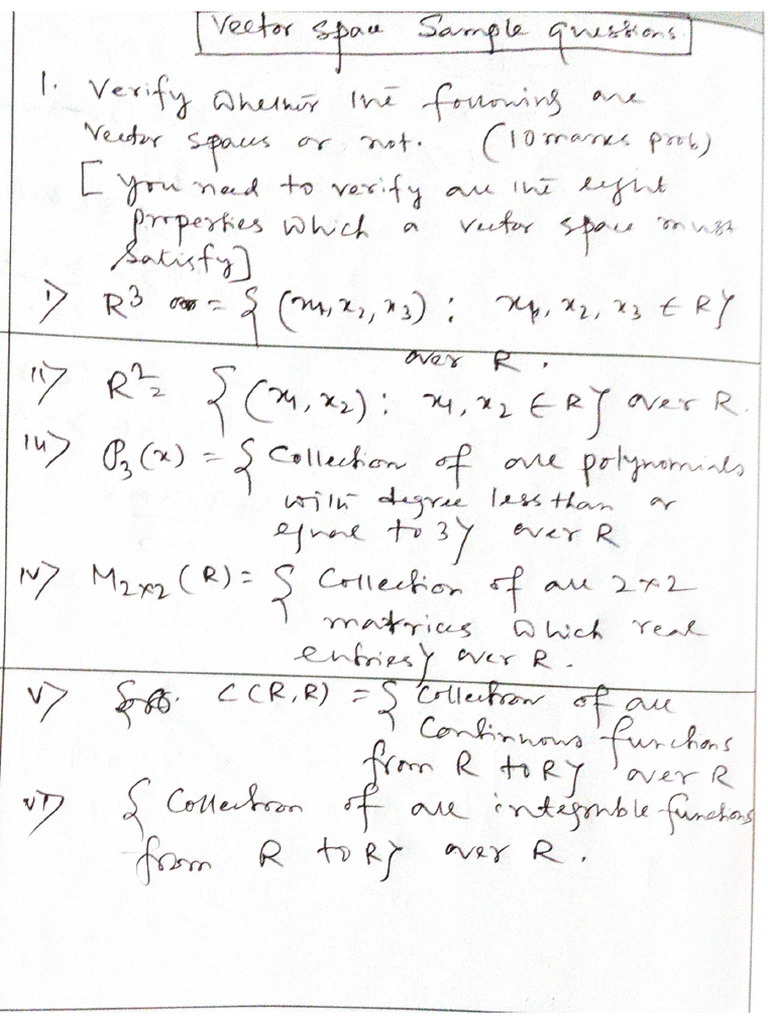 Vector space Sample questions
1. Verify whether the following are
vector spaces or not. (10 marks prob)
[ you need to verify all the eight
properties which a vector space must
satisfy]
i) R³ = { (x₁, x₂, x₃) : x₁, x₂, x₃ ∈ R}
over R.
ii) R² = { (x₁, x₂) : x₁, x₂ ∈ R} over R.
iii) P₃(x) = { Collection of all polynomials
with degree less than or
equal to 3} over R
iv) M₂ₓ₂(R) = { Collection of all 2×2
matrices which real
entries} over R.
v) C(R,R) = { Collection of all
Continuous functions
from R to R} over R
vi) { Collection of all integrable functions
from R to R} over R.